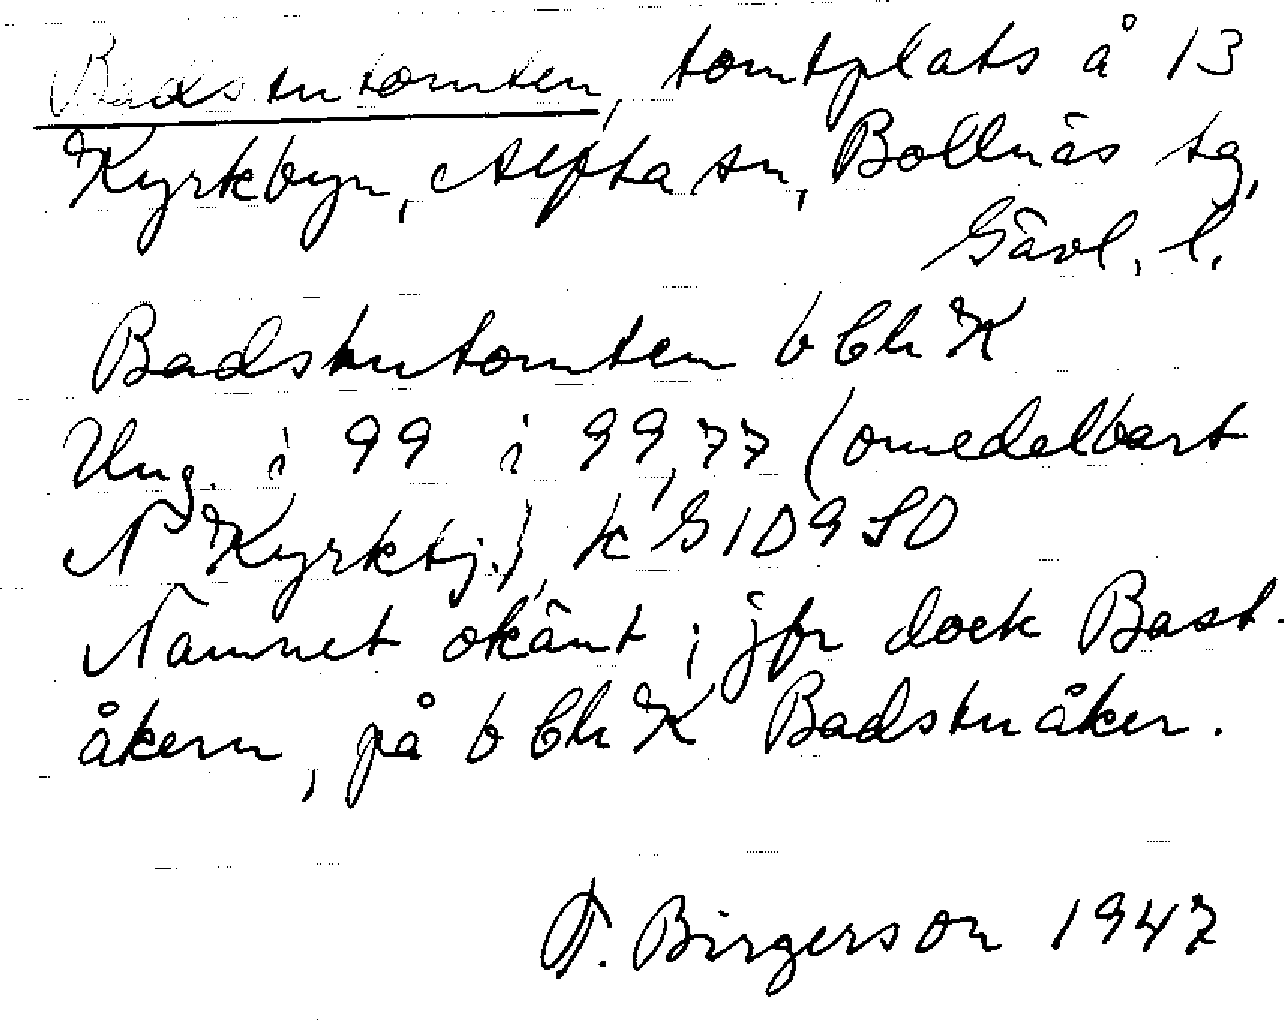 Badstutomten, tomtplats å 13
Kyrkbyn, Alfta sn, Bollnäs tg,
Gävl. l.
Badstutomten b Chr K
Ung. i 99 i 99,77 (omedelbart
N Kyrktj.), k G109 SO
Namnet okänt; jfr dock Bast-
åkern, på b Chr K Badstuåker.
F. Birgerson 1947